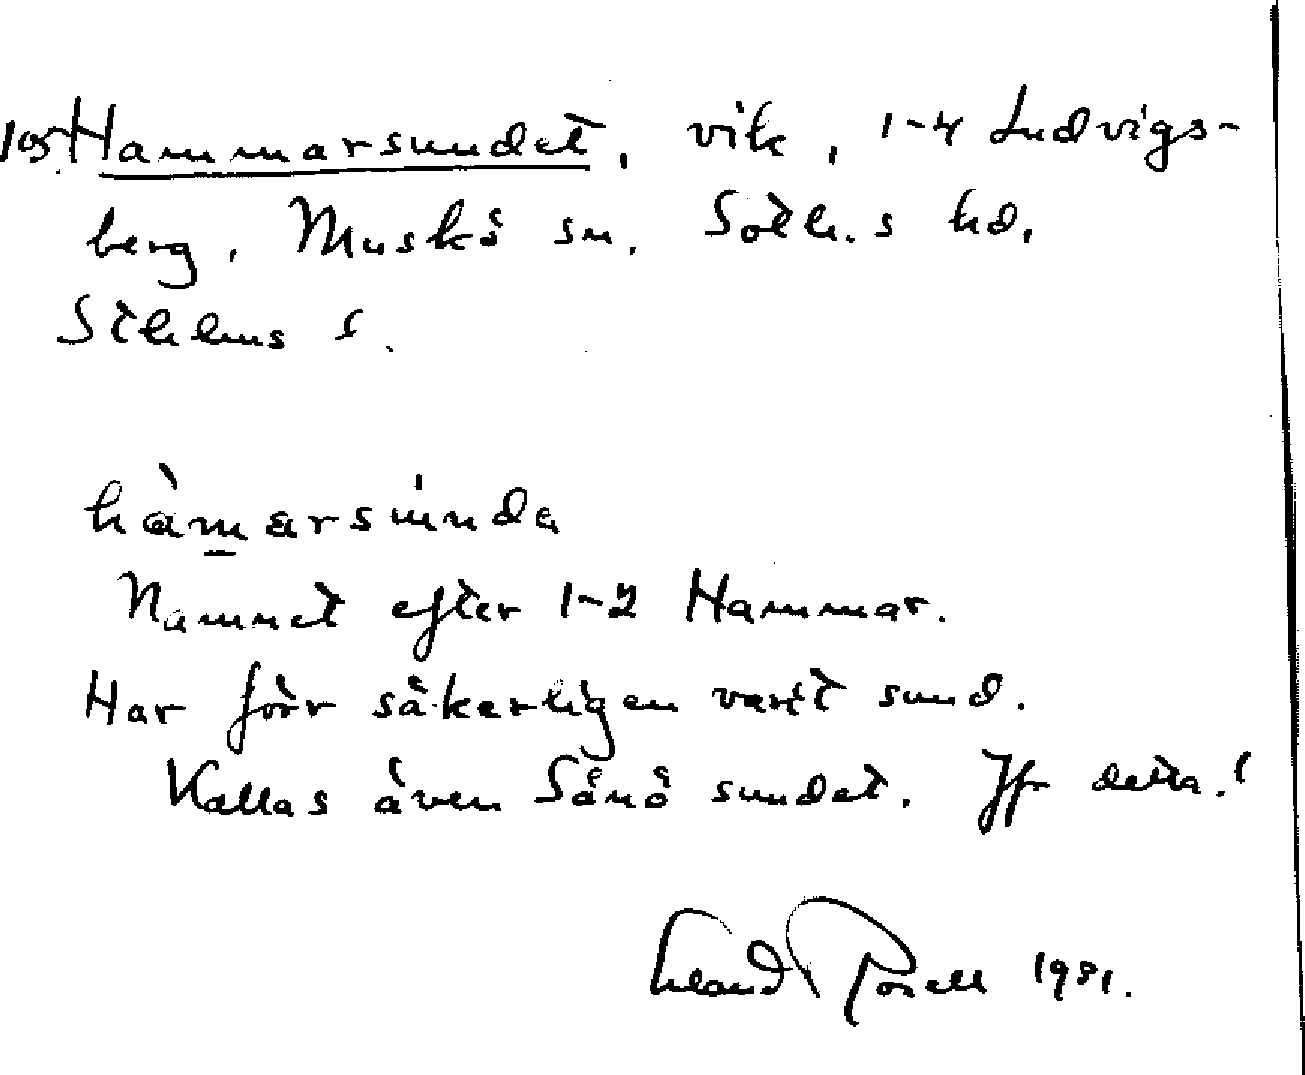 105 Hammarsundet, vik, 1-4 Ludvigs-
berg, Muskö sn. Soth.s hd.
Sthlms l.
hàmarsúnda
Namnet efter 1-2 Hammar.
Har förr säkerligen varit sund.
Kallas även Sånö sundet. Jfr detta!
1931.